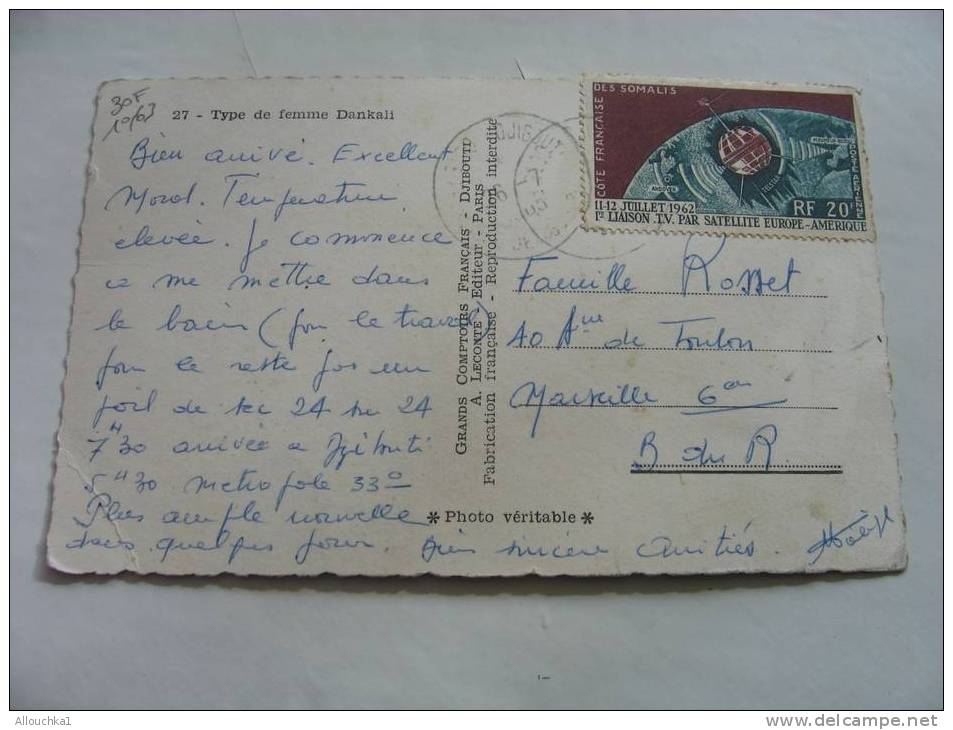 30F
10/63
27 - Type de femme Dankali
Bien arrivé. Excellent
Moral. Temperature
elevée. Je commence
a me mettre dans
le bain (pour le travail)
pour le reste pas un
poil de sec 24 sur 24
7H30 arrivée a Djibouti
5H30 metropole 33°
Plus ample nouvelle
dans quelques jours. Bien sincère amitiés.
GRANDS COMPTOIRS FRANÇAIS - DJIBOUTI
A. LECONTE - Editeur - PARIS
Fabrication française - Reproduction interdite
* Photo véritable *
DJIBOUTI
COTE FRANÇAISE DES SOMALIS
POSTE AERIENNE
ANDOVER
TELSTAR
11-12 JUILLET 1962
1re LIAISON .T.V. PAR SATELLITE EUROPE-AMERIQUE
RF 20F
Famille Rosset
40 Aue de Toulon
Marseille 6em
B du R.
Allouchka1
www.delcampe.net